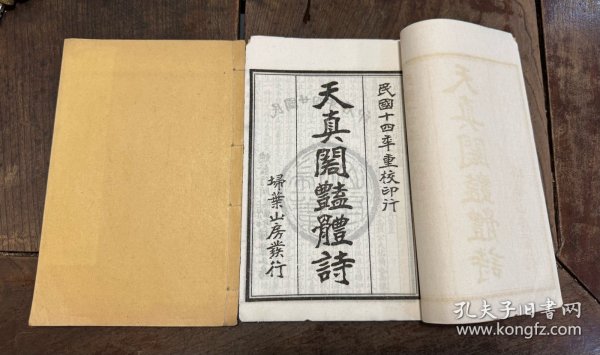 民國十四年重校印行
天真閣豔體詩
埽葉山房發行
孔夫子旧书网
www.kongfz.com